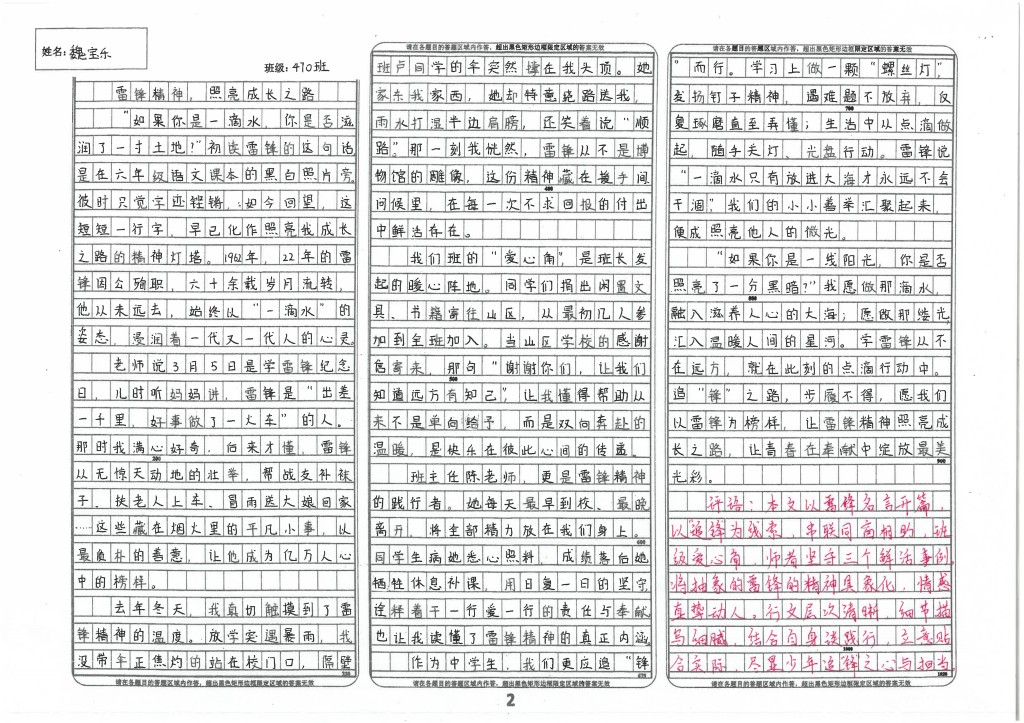 姓名：魏宝乐
班级：470班
雷锋精神，照亮成长之路
“如果你是一滴水，你是否滋
润了一寸土地？”初读雷锋的这句话
是在六年级语文课本的黑白照片旁。
彼时只觉字迹铿锵，如今回望，这
短短一行字，早已化作照亮我成长
之路的精神灯塔。1962年，22年的雷
锋因公殉职，六十余载岁月流转，
他从未远去，始终以“一滴水”的
姿态，浸润着一代又一代人的心灵
老师说3月5日是学雷锋纪念
日，儿时听妈妈讲，雷锋是“出差
一千里，好事做了一火车”的人。
那时我满心好奇，后来才懂，雷锋
200
从无惊天动地的壮举，帮战友补袜
子、扶老人上车、冒雨送大娘回家
……这些藏在烟火里的平凡小事，以
最质朴的善意，让他成为亿万人心
中的榜样。
去年冬天，我真切触摸到了雷
锋精神的温度。放学突遇暴雨，我
没带伞正焦灼的站在校门口，隔壁
请在各题目的答题区域内作答，超出黑色矩形边框限定区域的答案无效
请在各题目的答题区域内作答，超出黑色矩形边框限定区域的答案无效
班卢同学的伞突然撑在我头顶。她
家东我家西，她却特意绕路送我，
雨水打湿半边肩膀，还笑着说“顺
路”。那一刻我恍然，雷锋从不是博
物馆的雕像，这份精神藏在援手间
400
问候里，在每一次不求回报的付出
中鲜活存在。
我们班的“爱心角”，是班长发
起的暖心阵地。同学们捐出闲置文
具、书籍寄往山区，从最初几人参
加到全班加入。当山区学校的感谢
信寄来，那句“谢谢你们，让我们
500
知道远方有知己”，让我懂得帮助从
来不是单向给予，而是双向奔赴的
温暖，是快乐在彼此心间的传递。
班主任陈老师，更是雷锋精神
的践行者。她每天最早到校、最晚
离开，将全部精力放在我们身上。
600
同学生病她悉心照料，成绩落后她
牺牲休息补课，用日复一日的坚守
诠释着干一行爱一行的责任与奉献
也让我读懂了雷锋精神的真正内涵
作为中学生，我们更应追“锋
请在各题目的答题区域内作答，超出黑色矩形边框限定区域的答案无效
请在各题目的答题区域内作答，超出黑色矩形边框限定区域的答案无效
”而行。学习上做一颗“螺丝灯”，
发扬钉子精神，遇难题不放弃，反
700
复琢磨直至弄懂；生活中从点滴做
起，随手关灯、光盘行动。雷锋说
“一滴水只有放进大海才永远不会
干涸”，我们的小小善举汇聚起来，
便成照亮他人的微光。
“如果你是一线阳光，你是否
照亮了一分黑暗？”我愿做那滴水，
800
融入滋养人心的大海；愿做那缕光，
汇入温暖人间的星河。学雷锋从不
在远方，就在此刻的点滴行动中。
追“锋”之路，步履不停，愿我们
以雷锋为榜样，让雷锋精神照亮成
长之路，让青春在奉献中绽放最美
900
光彩。
评语：本文以雷锋名言开篇，
以追锋为线索，串联同高相助，班
级爱心角，师者坚守三个鲜活事例，
将抽象的雷锋的精神具象化，情感
真挚动人。行文层次清晰，细节描
写细腻，结合自身谈践行，立意贴
1000
合实际，尽显少年追锋之心与担当。
请在各题目的答题区域内作答，超出黑色矩形边框限定区域的答案无效
2